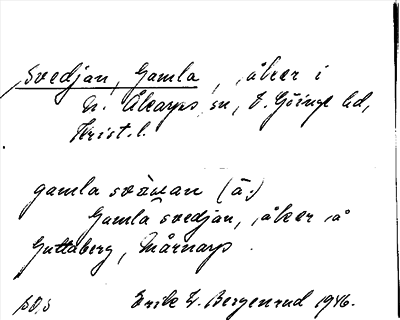 Svedjan, Gamla, åker i
N. Åkarps sn, V. Göinge hd,
Krist. l.
gamla (å.)
Gamla svedjan, åker å
Guttaberg, Mårnarp.
Erik W. Bergenrud 1946.